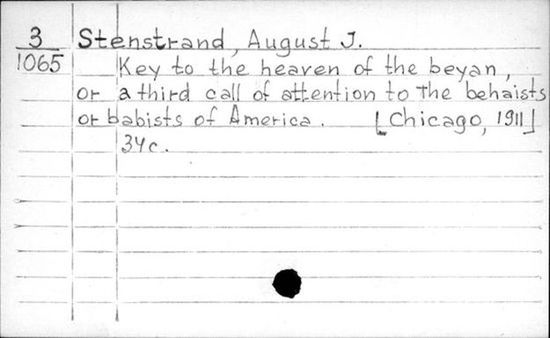 3 Stenstrand, August J.
1065 Key to the heaven of the beyan,
or a third call of attention to the behaists
or babists of America. [Chicago, 1911]
34c.